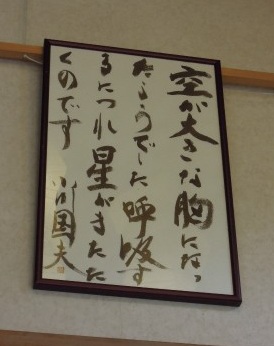 空が大きな胸になっ
たようでした呼吸す
るにつれ星がまたた
くのです 小川国夫